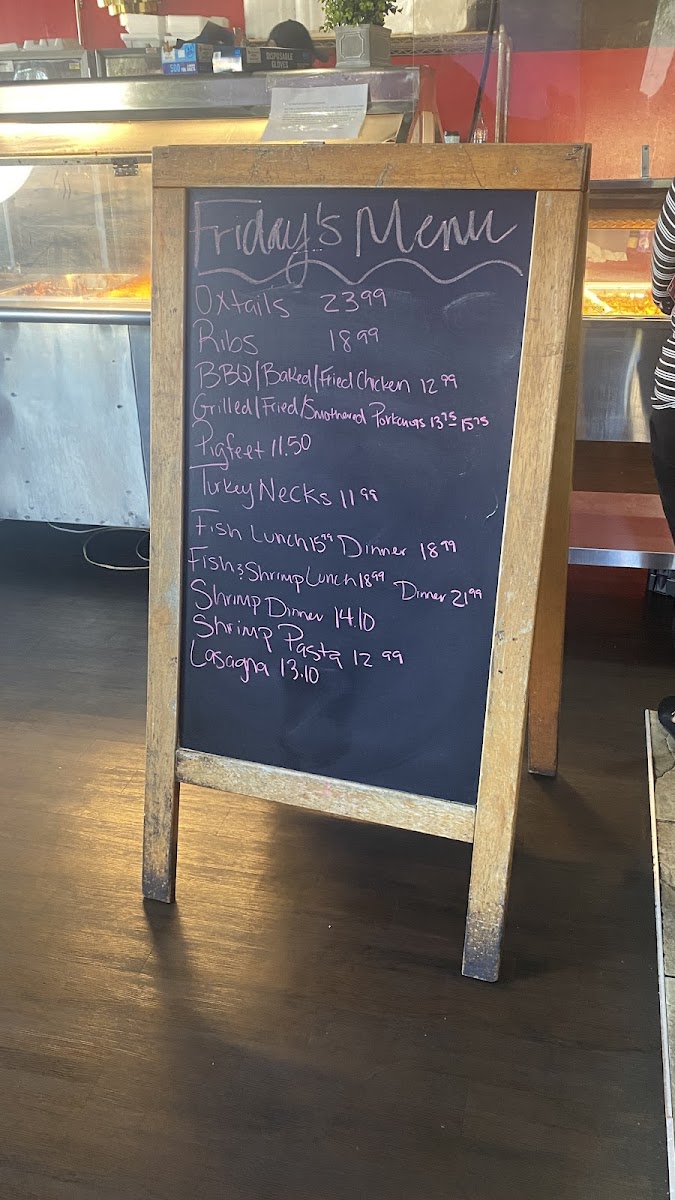 500
DISPOSABLE
GLOVES
Friday's Menu
Oxtails 23.99
Ribs 18.99
BBQ/Baked/Fried Chicken 12.99
Grilled/Fried/Smothered Porkchops 13.75 15.75
Pigfeet 11.50
Turkey Necks 11.99
Fish Lunch 15.99 Dinner 18.99
Fish & Shrimp Lunch 18.99 Dinner 21.99
Shrimp Dinner 14.10
Shrimp Pasta 12.99
Lasagna 13.10